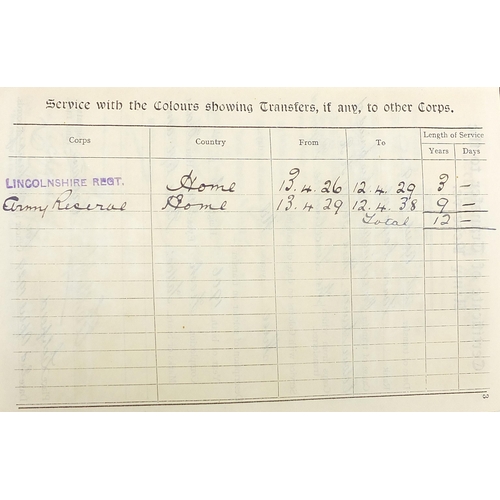 Service with the Colours showing Transfers, if any, to other Corps.
Corps Country From To Length of Service
Years Days
LINCOLNSHIRE REGT. Home 13.4.26 12.4.29 3 –
Army Reserve Home 13.4.29 12.4.38 9 –
Total 12 –
3